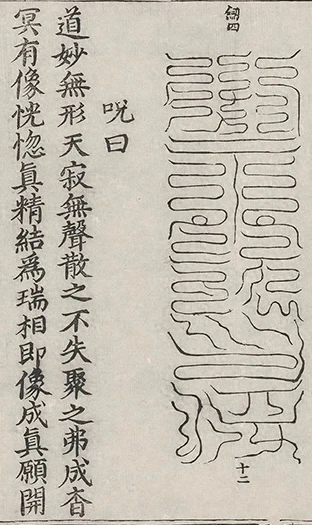 四
十二
呪曰
道妙無形天寂無聲散之不失聚之弗成杳
冥有像恍惚眞精結為瑞相即像成眞願開